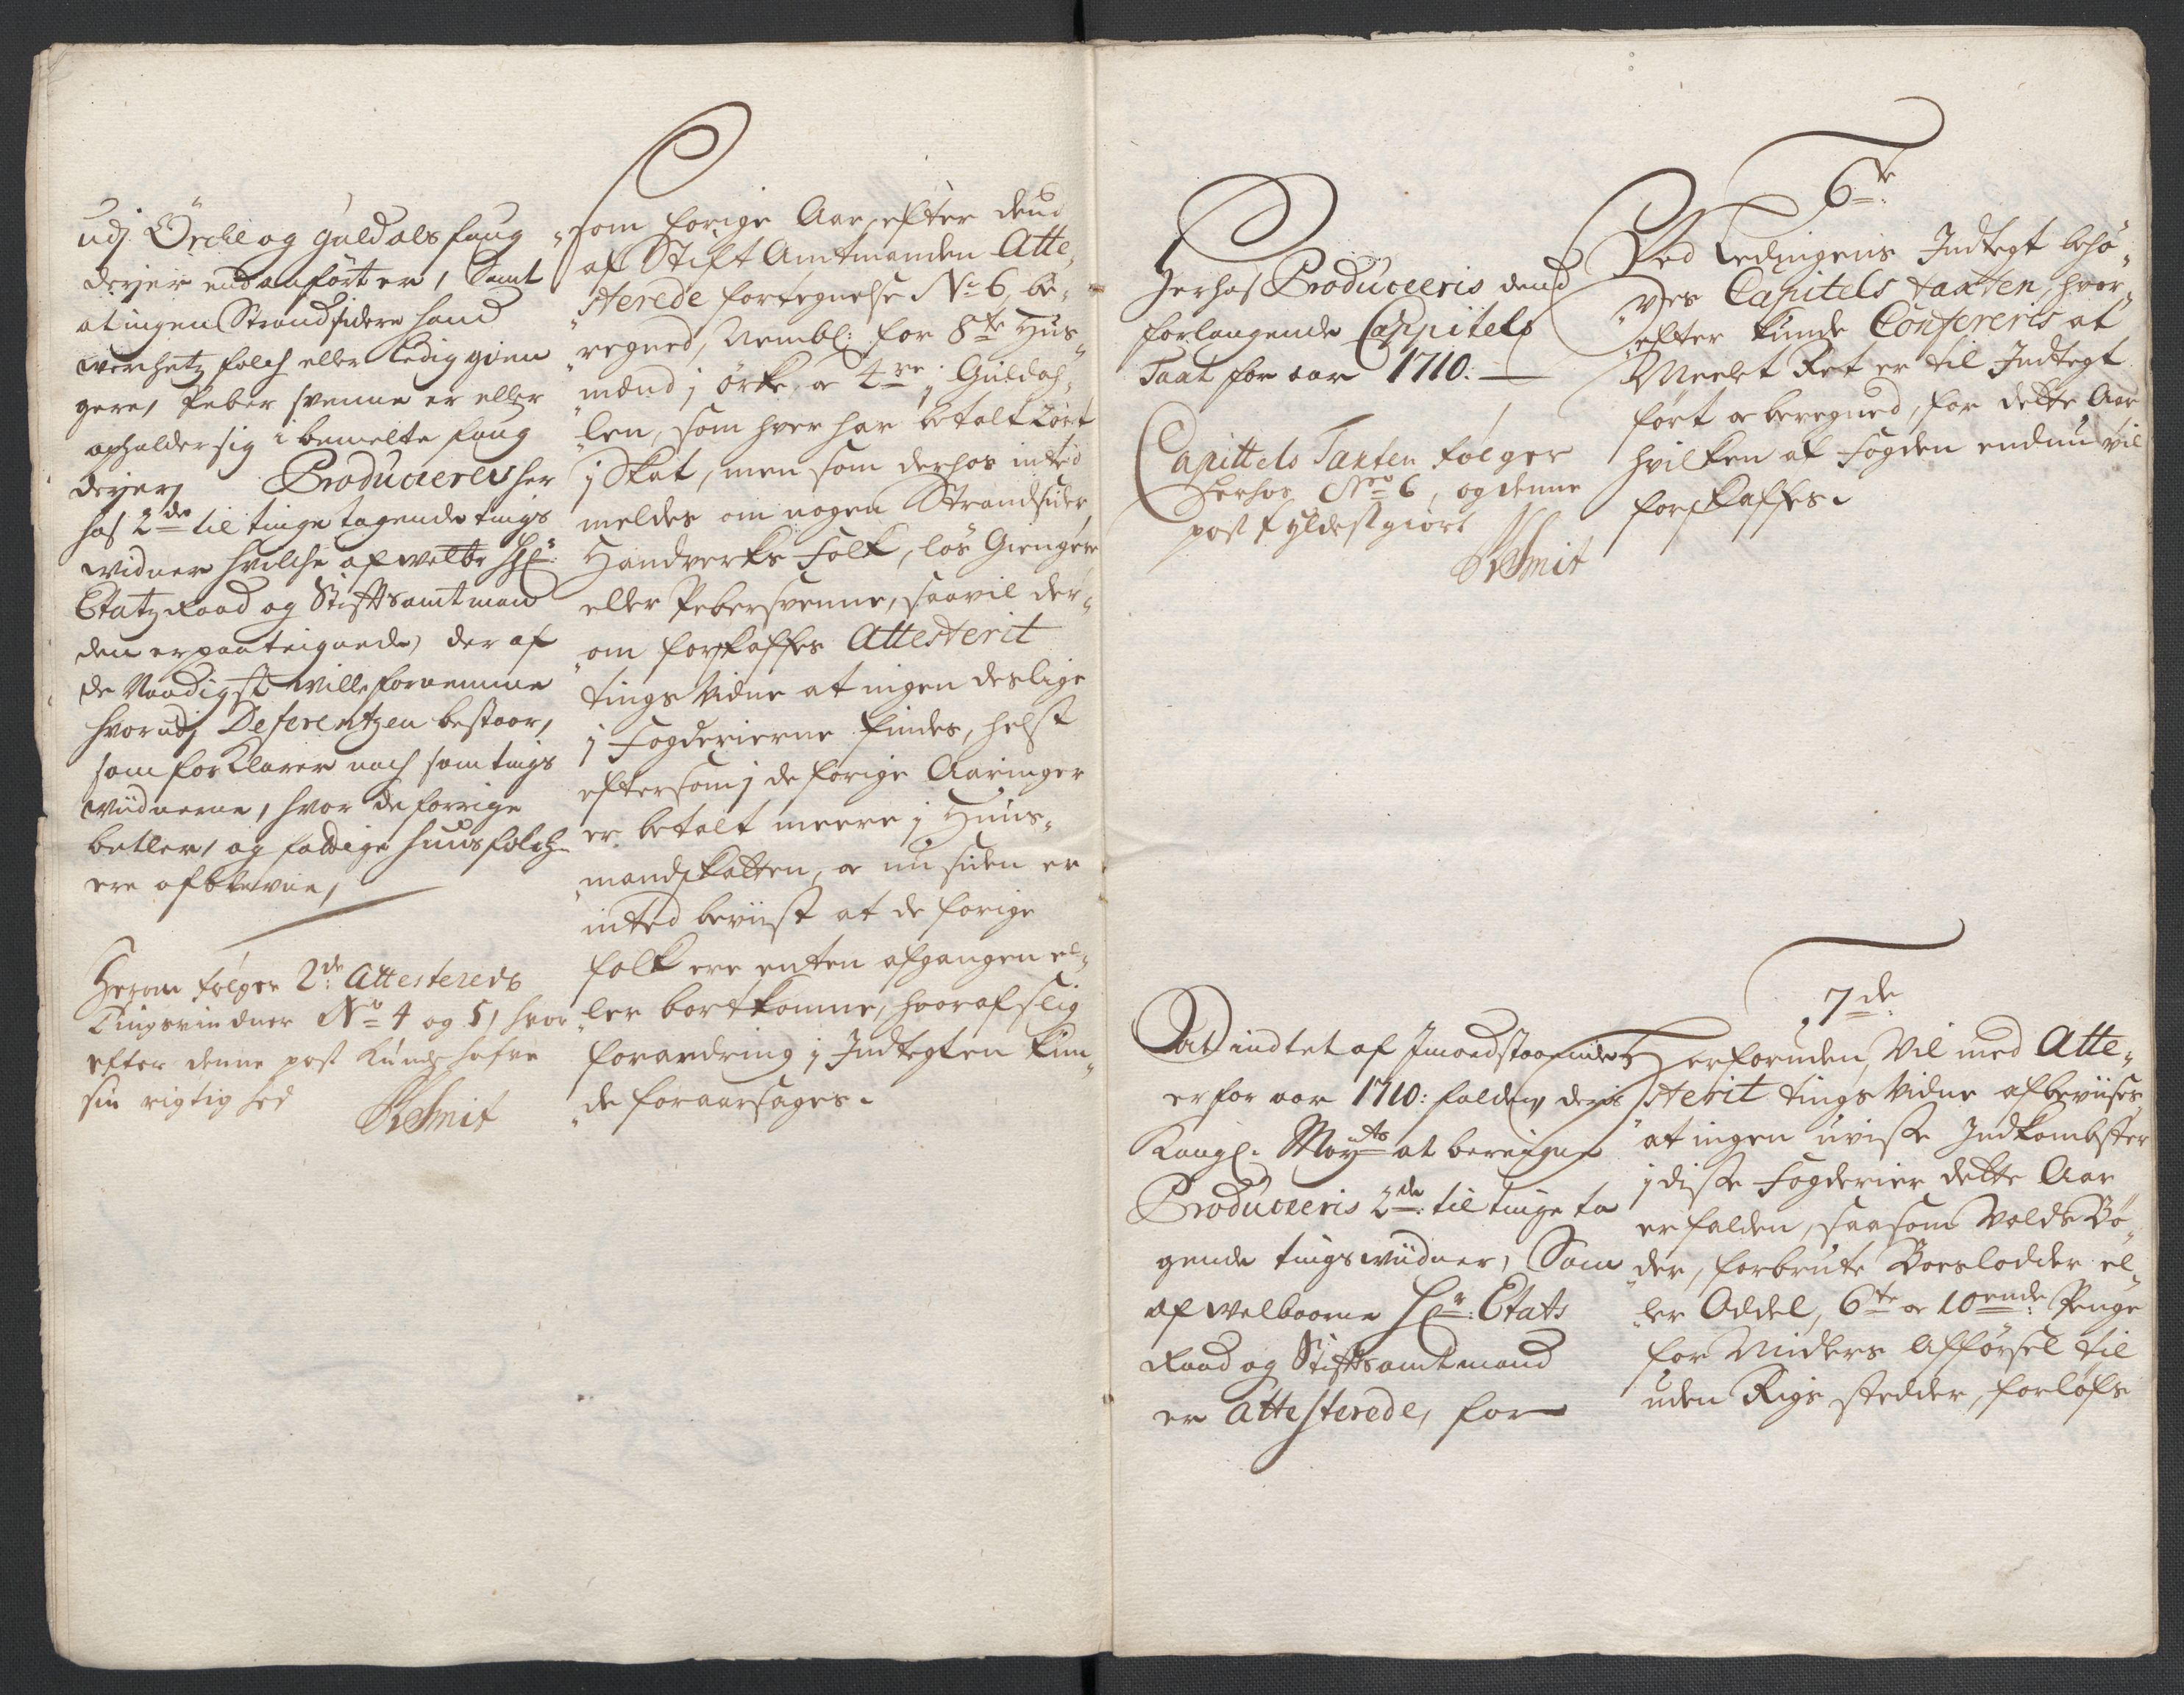 udj Örche og Guldals foug
derjer end anfört er, Samt
at ingen Strandsidere hand
werchetz folch eller Ledig gien
gere, Peber svenne er eller
opholder sig i bemelte foug
derjer, Producieres her
hos 2de til tinge tagende tings
widner hvilche af welbr Hr:
Etatz Raad og Stifftsamtman
den er paateignede, der af
de Naadigst wille fornemme
hvorudj Deferentzen bestaar,
som forklarer noch som tings
widnerne, hvor de forrige
betler, og fattige huusfolch
ere afblevne,
Herom følger 2de Attesterede
Tingsvindner No 4 og 5, hvor
efter denne post kunde hafve
sin rigtighed
KSmit
som forige Aar, efter dend
af Stift Amtmanden Atte„
„sterede fortegnelse No 6, be„
„regned, Nembl: for 8te Hus„
„mænd j örke, og 4re j Guldah„
„len, som hver har betalt 2 ort
j Skat, men som derhos inted
meldes om nogen Strandsider
Handverks Folk, lös Giengere
eller Pebersvenne, saavil der„
„om forskaffes Attesterit
tings Vidne at ingen deslige
j Fogderierne findes, helst
eftersom j de forige Aaringer
er betalt meere j Huus„
„mandskatten, og nu siden er
inted beviist at de forige
folk ere enten afgangen el„
„ler bortkomne, hvoraf slig
forandring j Indtegten kun„
„de foraarsages.
Herhos Produceeris dend
forlangende Cappitels
Taxt for aar 1710:
Capittels Taxten følger
herhos No 6, og denne
post fyldestgiort
KSmit
6te
Ved Ledingens Indtegt behö„
„ves Capitels taxten, hvor„
„efter kunde Confereris at
Meelet Ret er til Indtegt
fört og beregned, for dette Aar
hvilken af Fogden endnu vil
forskaffes.
At indtet af Imodstaaende
er for aar 1710: falden deris
Kongl. Mayts at bereigne
Produceeris 2de: til tinge ta
gende tingswidner, Som
af welbaarne Hr: Etats
Raad og Stifftsamtmand
er attesterede, for
7de
Herforuden, Vil med Atte„
„sterit tings Vidne afbeviises
at ingen uvisse Indkombster
j disse Fogderier dette Aar
er falden, saasom Volds Bö„
„der, forbrute Boeslodder el„
„ler Oddel, 6te og 10ende Penge
for Midlers Afförsel til
uden Rigs stedder, forlöfs